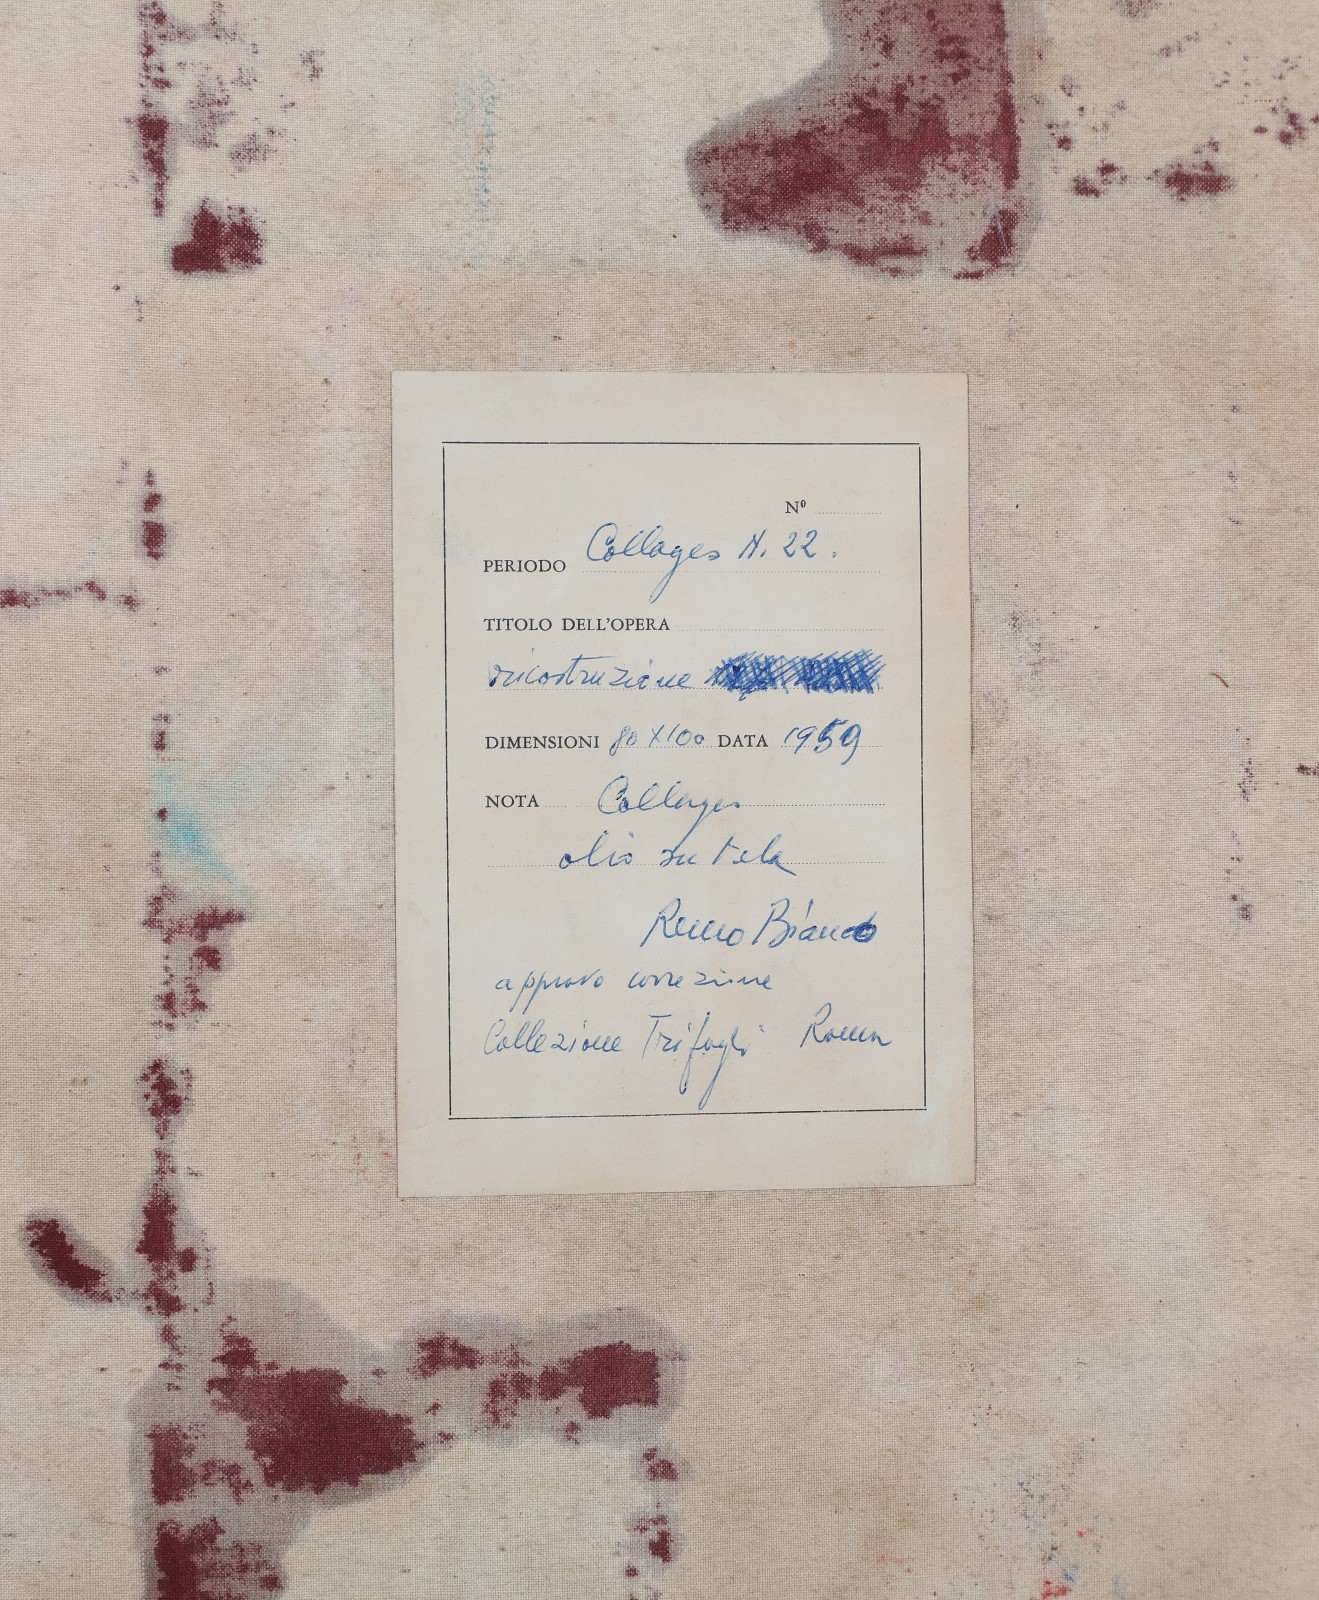 Nº
PERIODO Collages N. 22.
TITOLO DELL'OPERA
ricostruzione
DIMENSIONI 80 X 100 DATA 1959
NOTA Collages
olio su tela
Remo Bianco
approvo correzione
Collezione Trifogli Roma